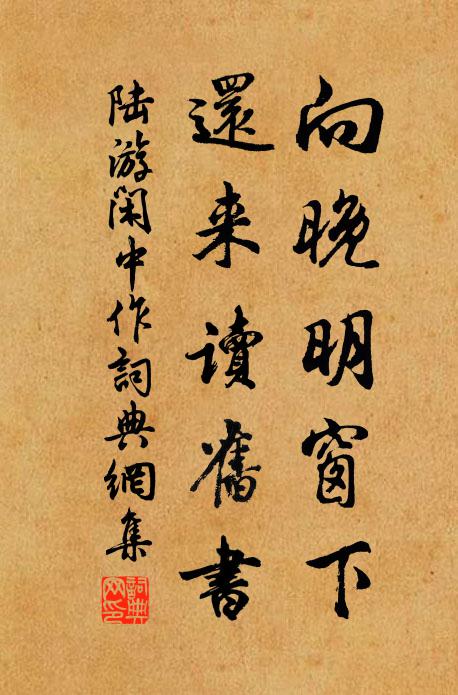 向晚明窗下
還来讀舊書
陸游閑中作詞典網集
詞典網印